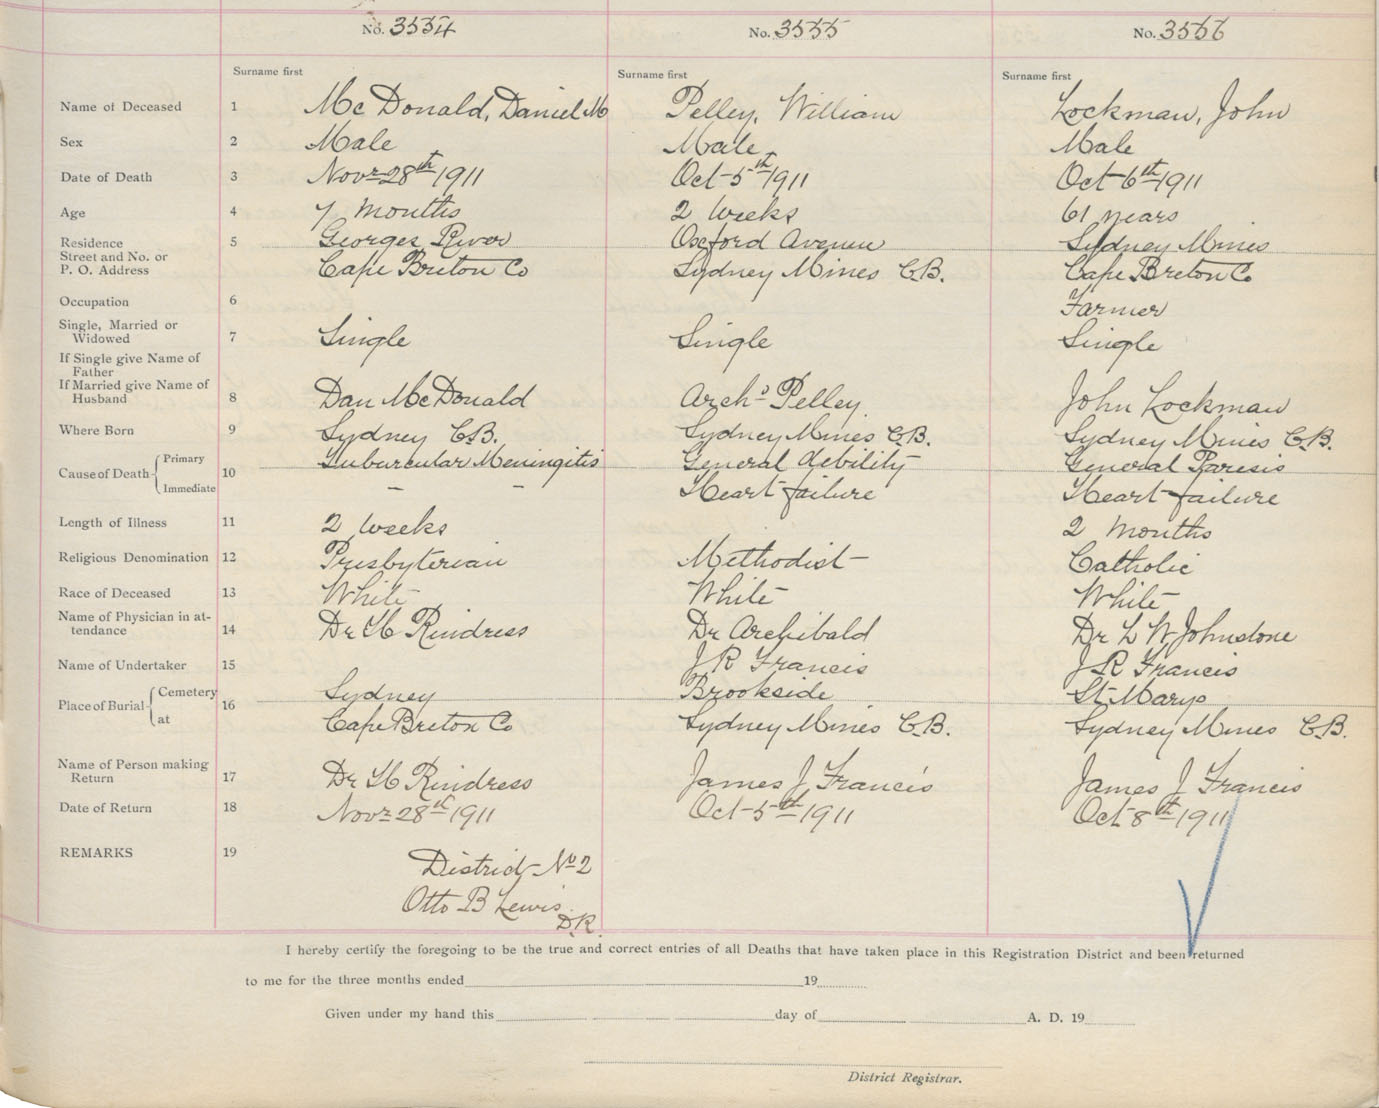 No. 3554 No. 3555 No. 3556
Surname first Surname first Surname first
Name of Deceased 1 McDonald, Daniel M Pelley, William Lockman, John
Sex 2 Male Male Male
Date of Death 3 Novr 28th 1911 Oct 5th 1911 Oct 6th 1911
Age 4 7 months 2 Weeks 61 years
Residence 5 Georges River Oxford Avenue Sydney Mines
Street and No. or
P. O. Address Cape Breton Co Sydney Mines C.B. Cape Breton Co
Occupation 6 Farmer
Single, Married or
Widowed 7 Single Single Single
If Single give Name of
Father
If Married give Name of
Husband 8 Dan McDonald Archd Pelley John Lockman
Where Born 9 Sydney C.B. Sydney Mines C.B. Sydney Mines C.B.
Cause of Death Primary 10 Meningitis General debility General Paresis
Immediate - - Heart failure Heart failure
Length of Illness 11 2 weeks 2 Months
Religious Denomination 12 Presbyterian Methodist Catholic
Race of Deceased 13 White White White
Name of Physician in at-
tendance 14 Dr H Rindress Dr Archibald Dr L W Johnstone
Name of Undertaker 15 J R Francis J R Francis
Place of Burial Cemetery 16 Sydney Brookside St Marys
at Cape Breton Co Sydney Mines C.B. Sydney Mines C.B.
Name of Person making
Return 17 Dr H Rindress James J Francis James J Francis
Date of Return 18 Novr 28th 1911 Oct 5th 1911 Oct 8th 1911
REMARKS 19 District No 2
Otto B Lewis
D.R.
I hereby certify the foregoing to be the true and correct entries of all Deaths that have taken place in this Registration District and been returned
to me for the three months ended 19
Given under my hand this day of A. D. 19
District Registrar.